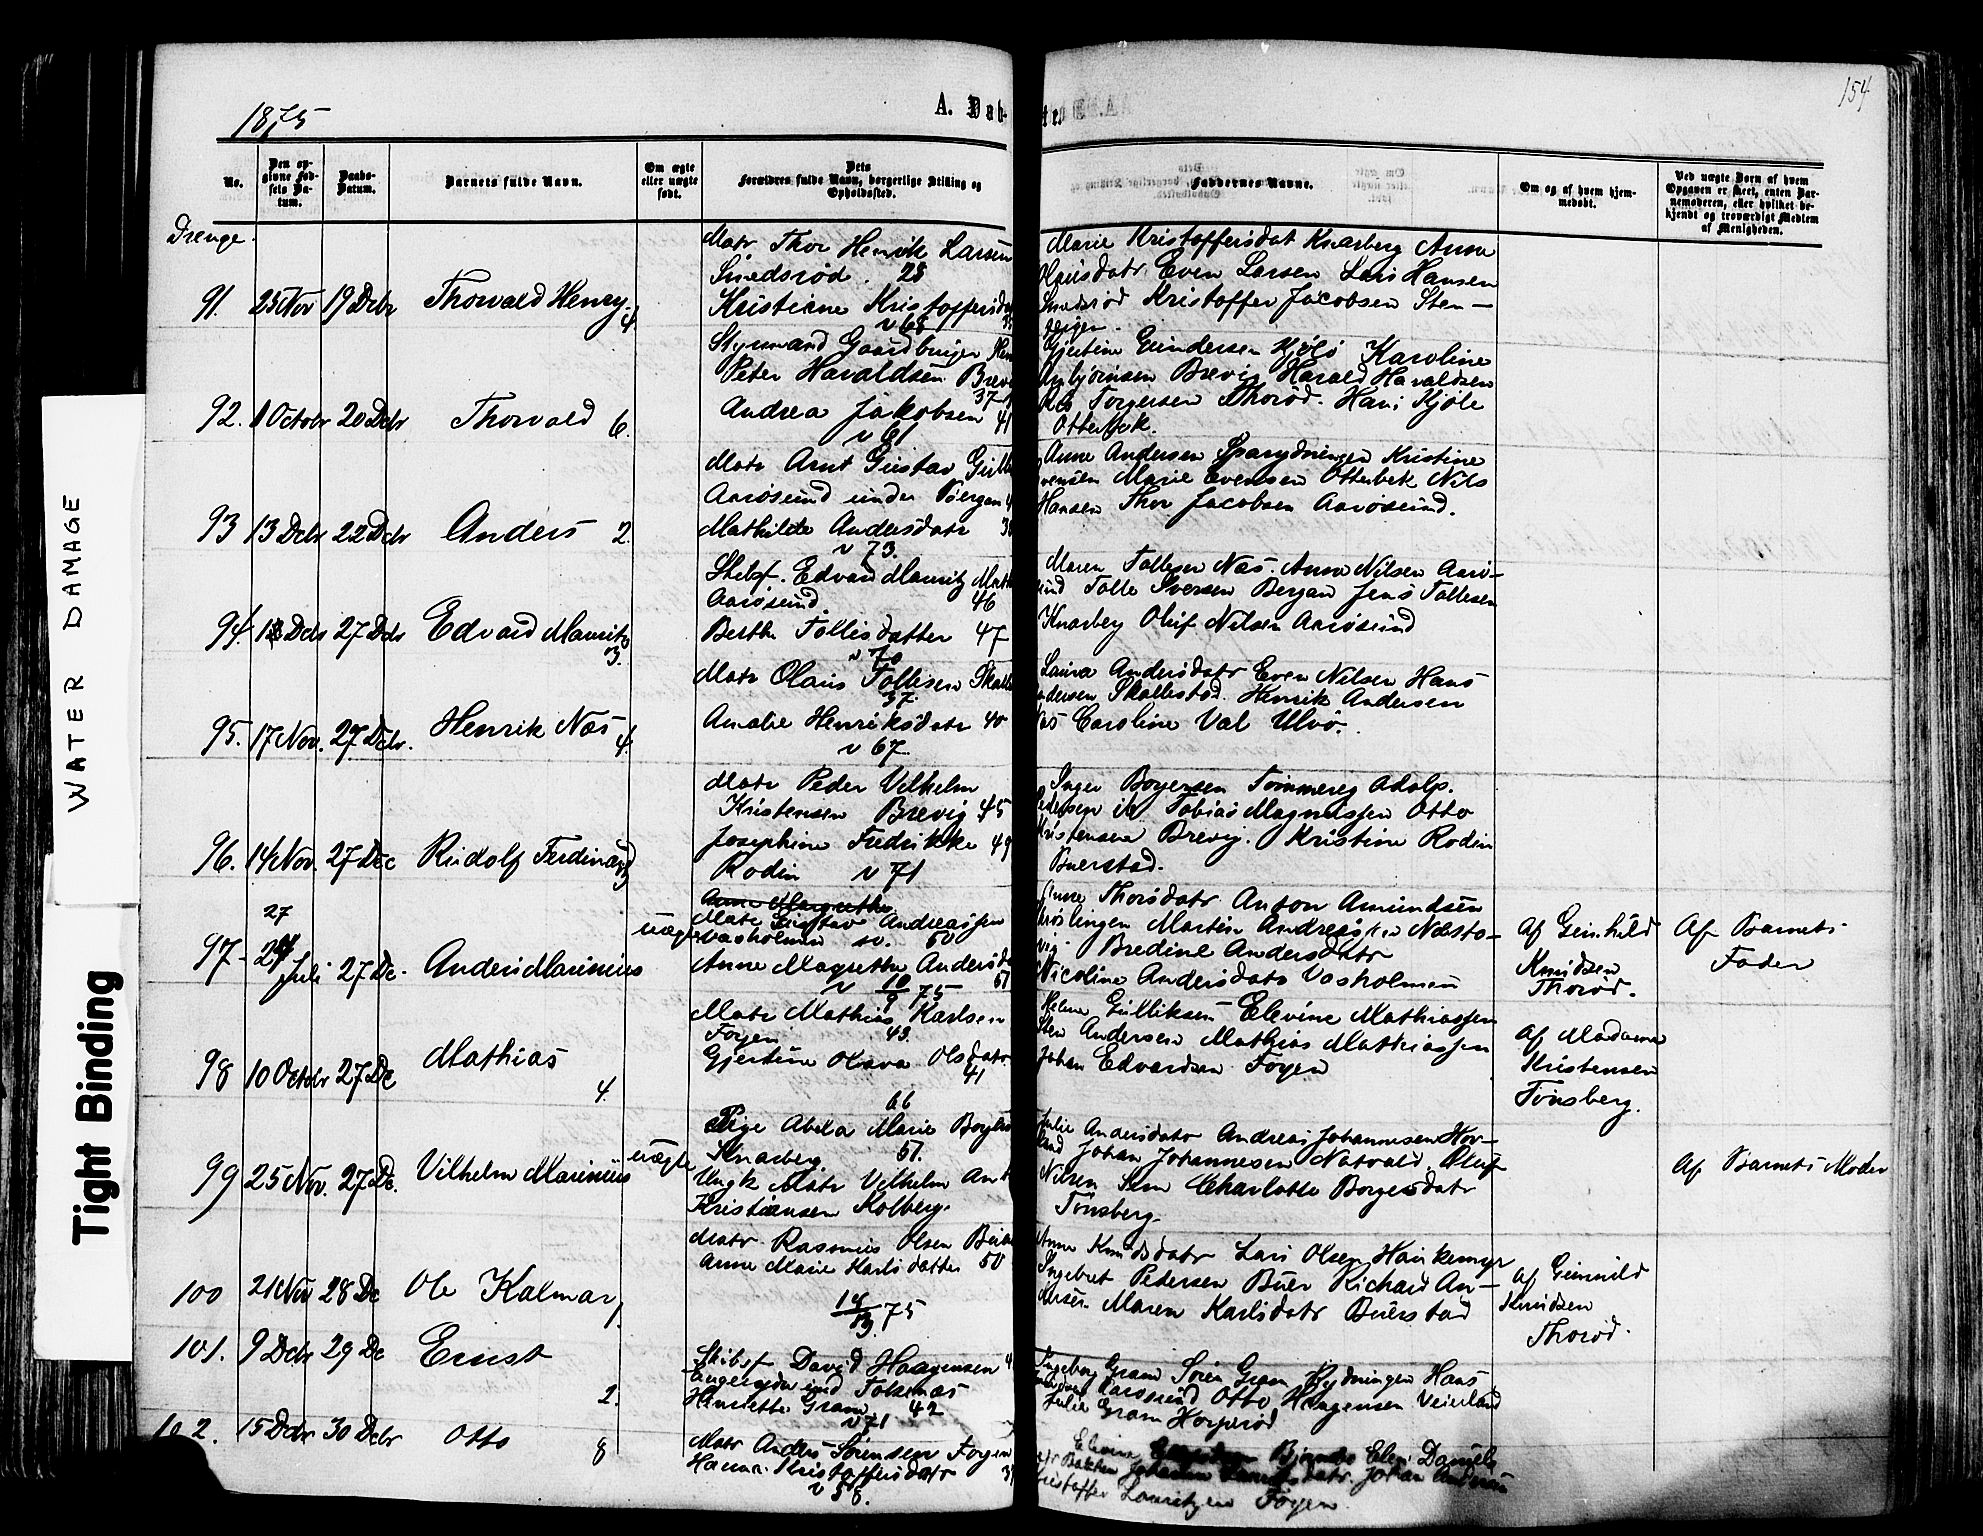 1875
A. Dab-
te.
154
No.
Den op-
givne Fød-
sels Da-
tum.
Daabs-
Datum.
Barnets fulde Navn.
Om ægte
eller uægte
født.
Dets
Forældres fulde Navn, borgerlige Stilling og
Opholdssted.
Faddernes Navne.
Om og af hvem hjem-
medøbt.
Ved uægte Børn af hvem
Opgaven er skeet, enten Bar-
nemoderen, eller hvilket be-
kjendt og troværdigt Medlem
af Menigheden.
Drenge.
91. 25 Nov 19 Debr Thorvald Henry 4.
Matr Thor Henrik Larsen
Smedsrød. 28
Kristiane Kristoffersda
v 68
Marie Kristoffersdat Knarberg Anne
Even Larsen Lars Hansen
Smedsrød Kristoffer Jacobsen Sten-
92. 1 Octobr 20 Debr Thorvald 6.
Styrmand Gaardbruger
Peter Havaldsen Brevi
37
Andrea Jakobsen 41
v 61
Gjertine Gundersen Kjøle Karoline
Brevig Harald Havaldsen
Torgersen Thorød. Hans Kjøle
Otterbek.
93 13 Debr 22 Debr Anders 2.
Matr Arnt Gustav
Aarøsund under
Mathilde Andersdatr
v 73.
Anne Andersen Kristine
Marie Evensen Otterbek Nils
Hansen Thor Jacobsen Aarøsund.
94. Debr 27 Debr Edvard Mauritz 3.
Skibsf. Edvard Mauritz
Aarøsund. 46
Berthe Tollisdatter 47
v 70
Maren Tollesen Nes. Anne Nilsen Aarø-
sund Tolle Iversen Bergan Jens Tollesen
Knarberg Oluf Nilsen Aarøsund
95. 17 Nov. 27 Debr. Henrik Næs 4.
Matr Olaus Tollesen
37.
Amalie Henriksdatr 40
v 67.
Laura Andersdatr Even Nilsen Hans
Andersen Skallestad. Henrik Andersen
Næs Caroline Val Ulvø.
96. 14 Nov. 27 Dec Rudolf Ferdinand 3
Matr Peder Vilhelm
Kristensen Brevig 45
Josephine Fredrikke 49
Rodin v 71
Inger Borgersen Tømmereg Adolp.
Pedersen ib Tobias Magnussen Otto
Kristensen Brevig. Kristine Rodin
Buerstad.
27
97- Juli 27 De. Anders Marinius
uægte
Anne Margrethe
Matr Gustav Andreassen
Vasholmen 50
Anne Magrethe Andersda
v 10/9 75
Anne Thorsdatr Anton Amundsen
Martin Andreassen Næsto-
vig. Bredine Andersdatr
Nicoline Andersdatr Vasholmen
Af Gunhild
Knudsen
Thorød.
Af Barnets
Fader
98 10 Octobr 27 De Mathias 4.
Matr Mathias Karlsen
Føyen 43.
Gjertine Olava Olsdatr
41
66
Helene Gulliksen Elevine Mathiassen
Andersen Mathias Mathiassen
Johan Edvardsen Føyen
Af Madame
Kristensen
Tønsberg.
99 25 Nov. 27 De. Vilhelm Marinius
uægte
Pige Abela Marie
Knarberg. 51.
Ungk Matr Vilhelm
Kristiansen Kolberg.
Julie Andersdatr Andreas Johannesen Hov-
land Johan Johannesen Natvald. Oluf
Nilsen Sem Charlotte Borgersdatr
Tønsberg.
Af Barnets Moder
100 21 Nov 28 De Ole Kalmar 1.
Matr Rasmus Olsen
Anne Marie Karlsdatter 50
14/3 75
Anne Knudsdatr Lars Olsen Haukemyr
Ingebret Pedersen Buer Richard An-
dersen Maren Karlsdatr Buerstad
Af Gunnild
Knudsen
Thorød.
101. 9 Debr 29 De Ernst 2.
Skibsf David Haagensen
Henriette Gram 42
v 71
Ingeborg Gram Søren Gram Rydningen Hans
Aarøsund Otto Haagensen Veierland
Julie Gram Horperød
102. 15 Debr 30 Debr Otto 8
Matr Anders Sørensen Føyen
Hanna Kristoffersdatr
v 58.
Elevine Bjønnes Elen Daniels
datr Bakken datr. Johan
Kristoffer Lauritzen Føyen.
WATER DAMAGE
Tight Binding